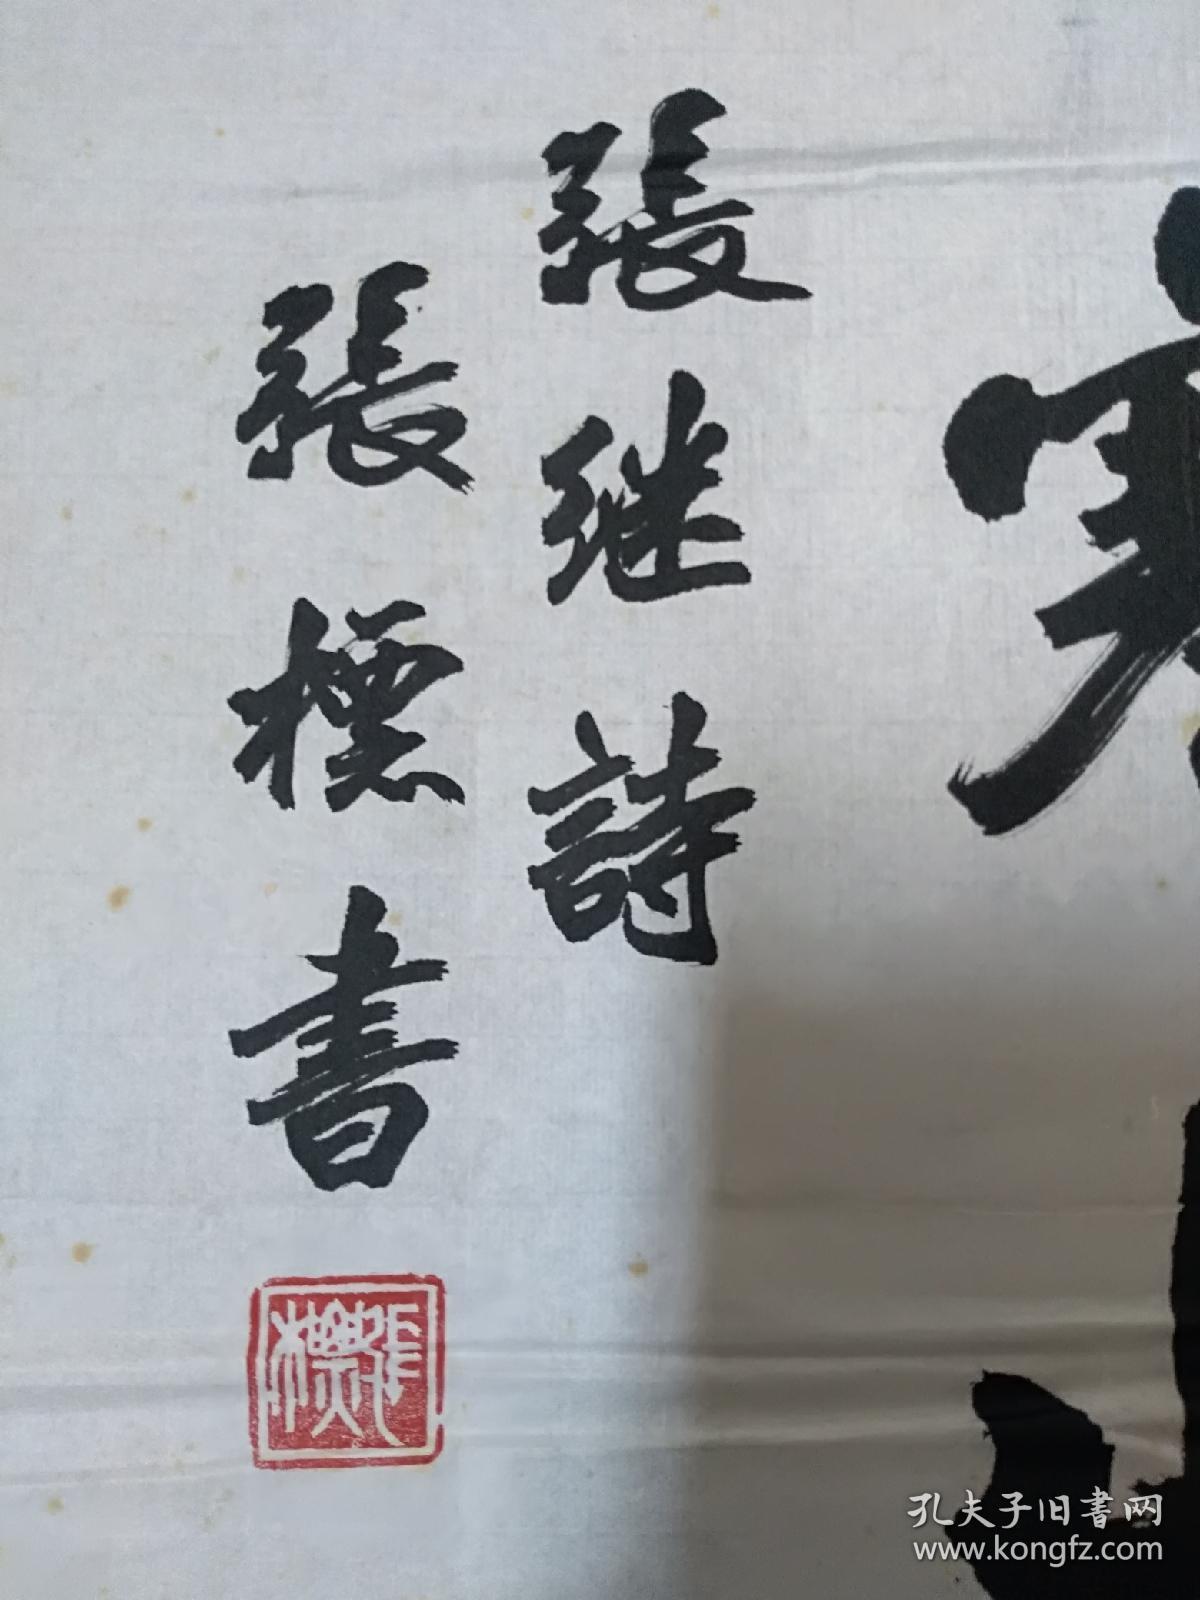 寒山
張继詩
張標書
張標
孔夫子旧書网
www.kongfz.com